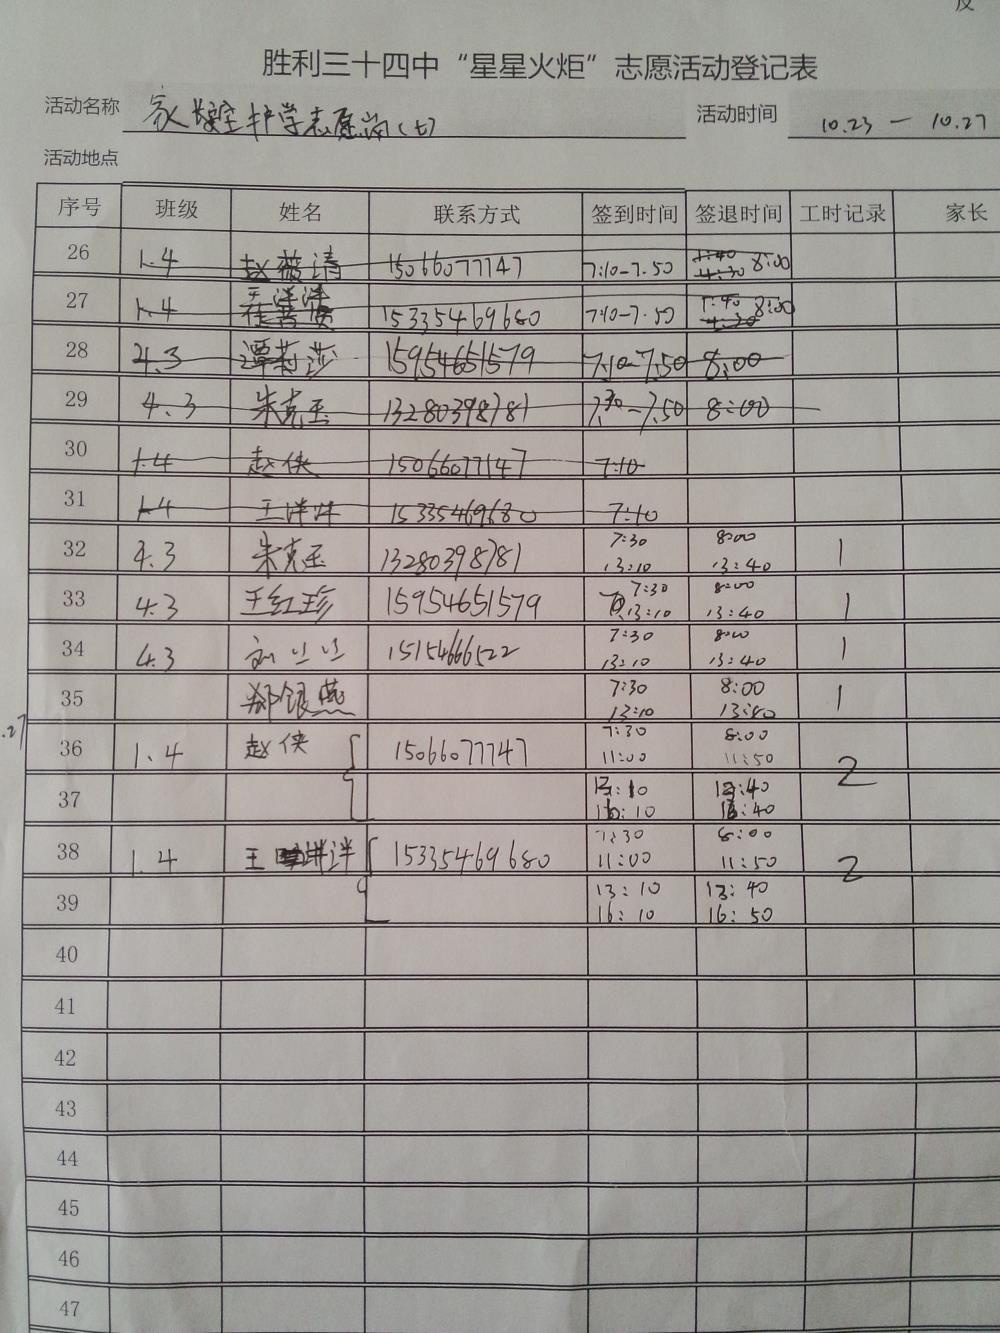 胜利三十四中“星星火炬”志愿活动登记表
活动名称 家长 护学志愿岗(七) 活动时间 10.23 — 10.27
活动地点
序号 班级 姓名 联系方式 签到时间 签退时间 工时记录 家长
26 1.4 赵薇清 15066077747 7:10-7.50 7:40 4:30 8:00
27 1.4 王洋洋 15335469680 7:10-7.50 7:40 4:30 8:00
28 4.3 谭莉莎 15954651579 7:10-7.50 8:00
29 4.3 朱克玉 13280398781 7:30-7.50 8:00
30 1.4 赵侠 15066077147 7:10
31 1.4 王洋洋 15335469680 7:10
32 4.3 朱克玉 13280398781 7:30 8:00 1
13:10 13:40
33 4.3 王红珍 15954651579 7:30 8:00 1
13:10 13:40
34 4.3 刘兰兰 15154666522 7:30 8:00 1
13:10 13:40
35 郑银燕 7:30 8:00 1
13:10 13:40
.27
36 1.4 赵侠 15066077747 7:30 8:00 2
11:00 11:50
37 13:10 13:40
16:10 16:40
38 1.4 王洋洋 15335469680 7:30 8:00 2
11:00 11:50
39 13:10 13:40
16:10 16:50
40
41
42
43
44
45
46
47